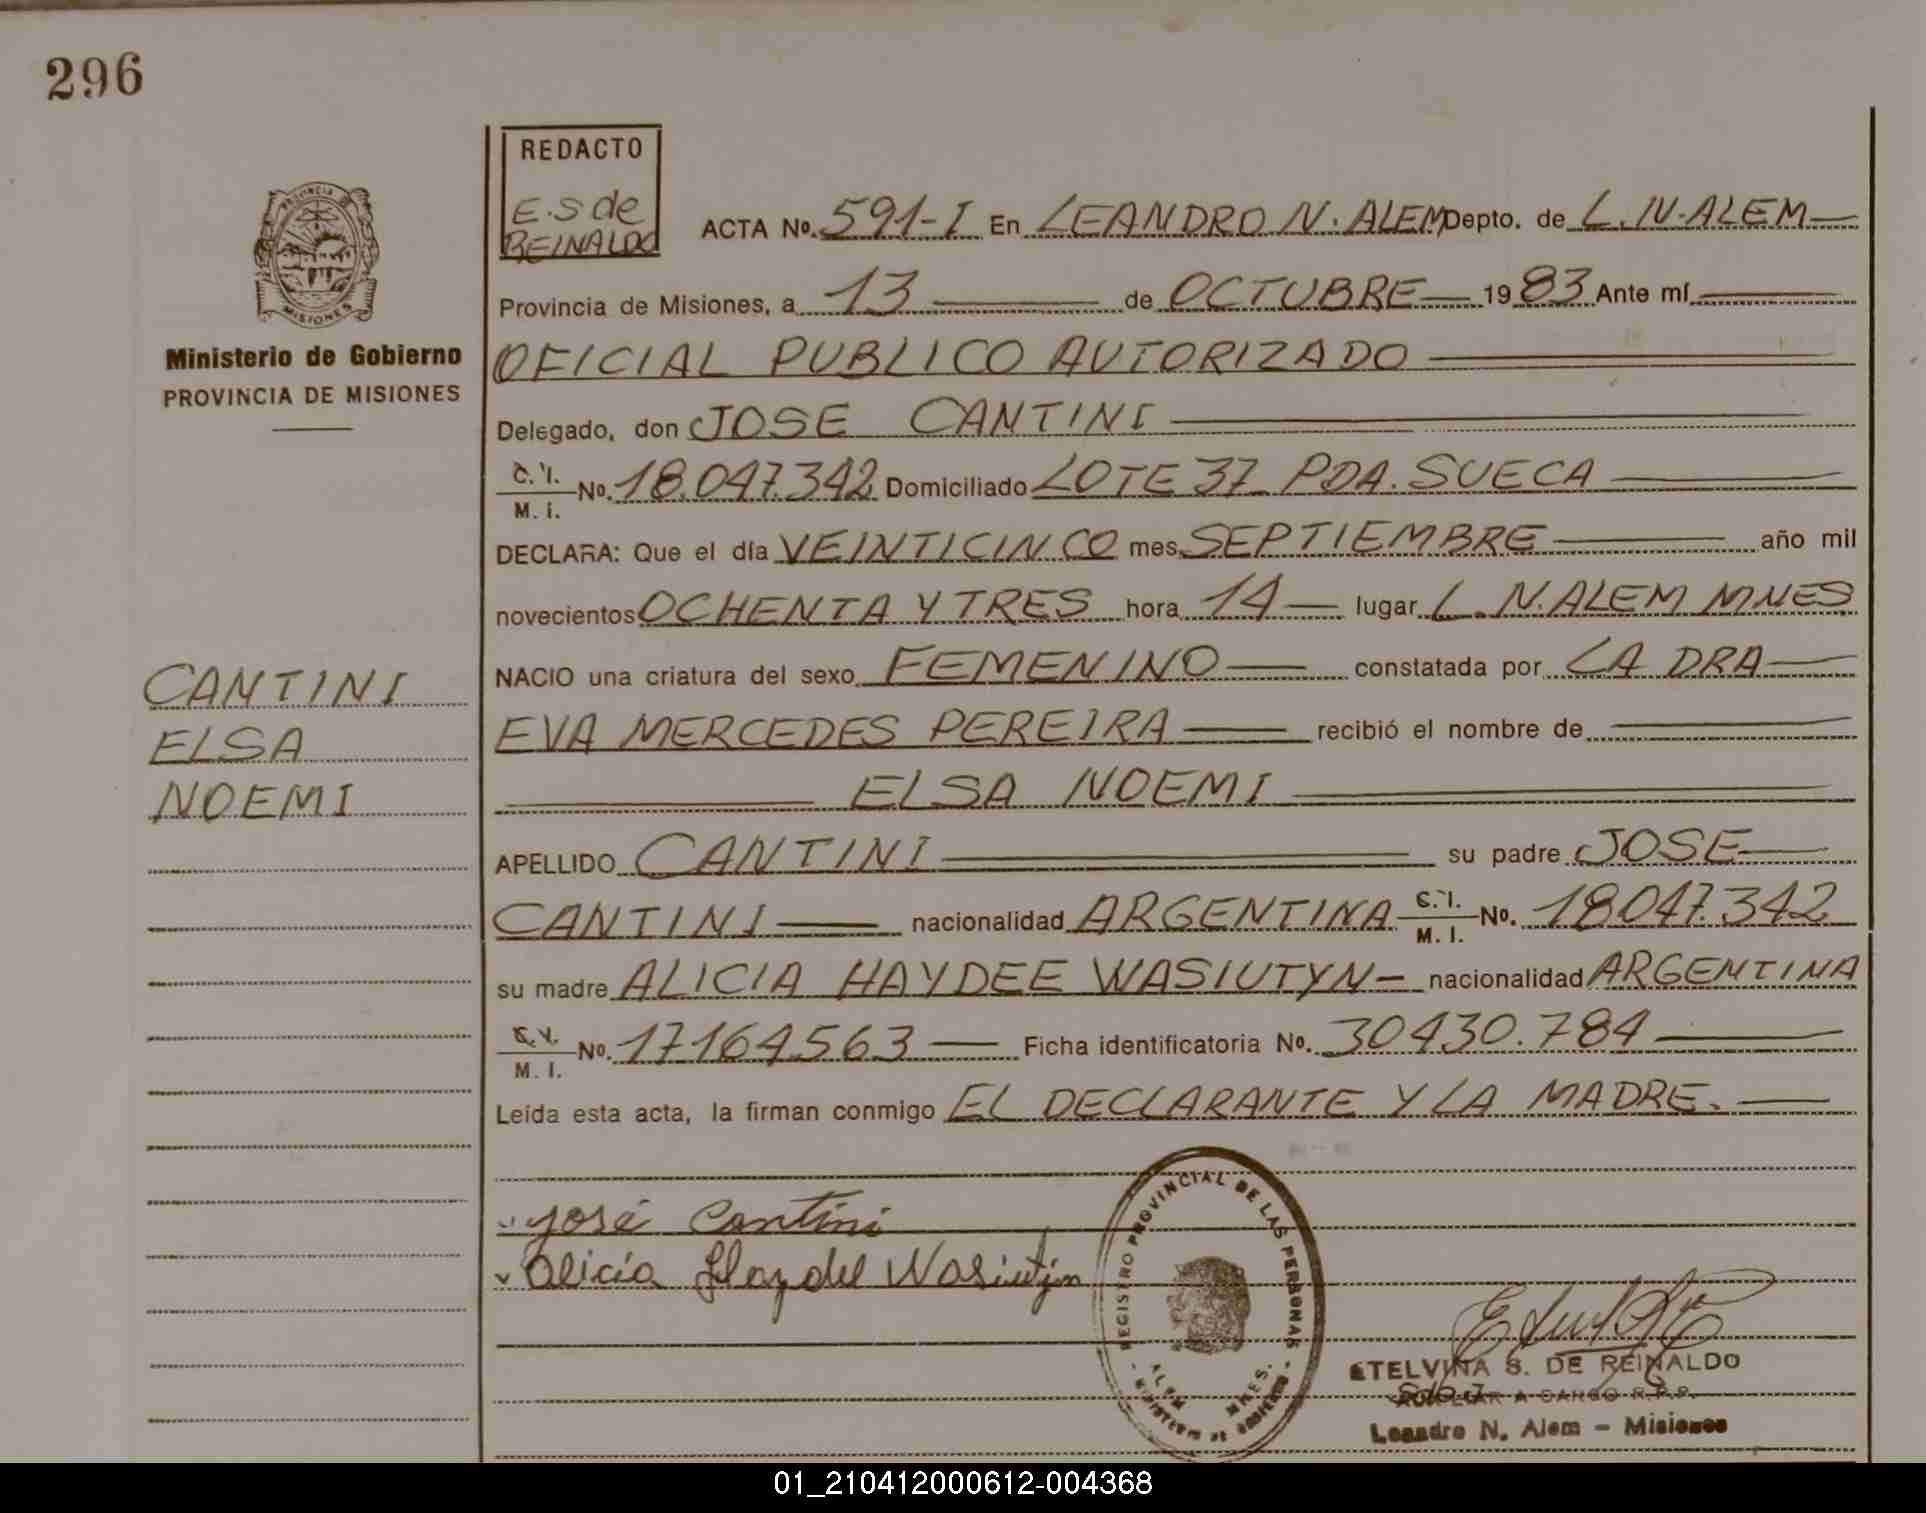 296
REDACTO
E.S de
REINALDO
ACTA No. 591-I En LEANDRO N. ALEM Depto. de L.N.ALEM
PROVINCIA DE
MISIONES
Provincia de Misiones, a 13 de OCTUBRE 1983 Ante mí
Ministerio de Gobierno
PROVINCIA DE MISIONES
OFICIAL PUBLICO AUTORIZADO
Delegado, don JOSE CANTINI
C. I.
M. I. No. 18.047.342 Domiciliado LOTE 37 PDA. SUECA
DECLARA: Que el día VEINTICINCO mes SEPTIEMBRE año mil
novecientos OCHENTA Y TRES hora 14 lugar L.N.ALEM MNES
CANTINI
ELSA
NOEMI
NACIO una criatura del sexo FEMENINO constatada por LA DRA
EVA MERCEDES PEREIRA recibió el nombre de
ELSA NOEMI
APELLIDO CANTINI su padre JOSE
CANTINI nacionalidad ARGENTINA C. I.
M. I. No. 18047.342
su madre ALICIA HAYDEE WASIUTYN nacionalidad ARGENTINA
M. I. No. 17164.563 Ficha identificatoria No. 30430.784
Leída esta acta, la firman conmigo EL DECLARANTE Y LA MADRE.
José Cantini
Alicia Haydeé Wasiutyn
REGISTRO PROVINCIAL DE LAS PERSONAS
ALEM MNES.
MINISTERIO DE GOBIERNO
ETELVINA S. DE REINALDO
AUXILIAR A CARGO R.P.P.
Leandro N. Alem - Misiones
01_210412000612-004368